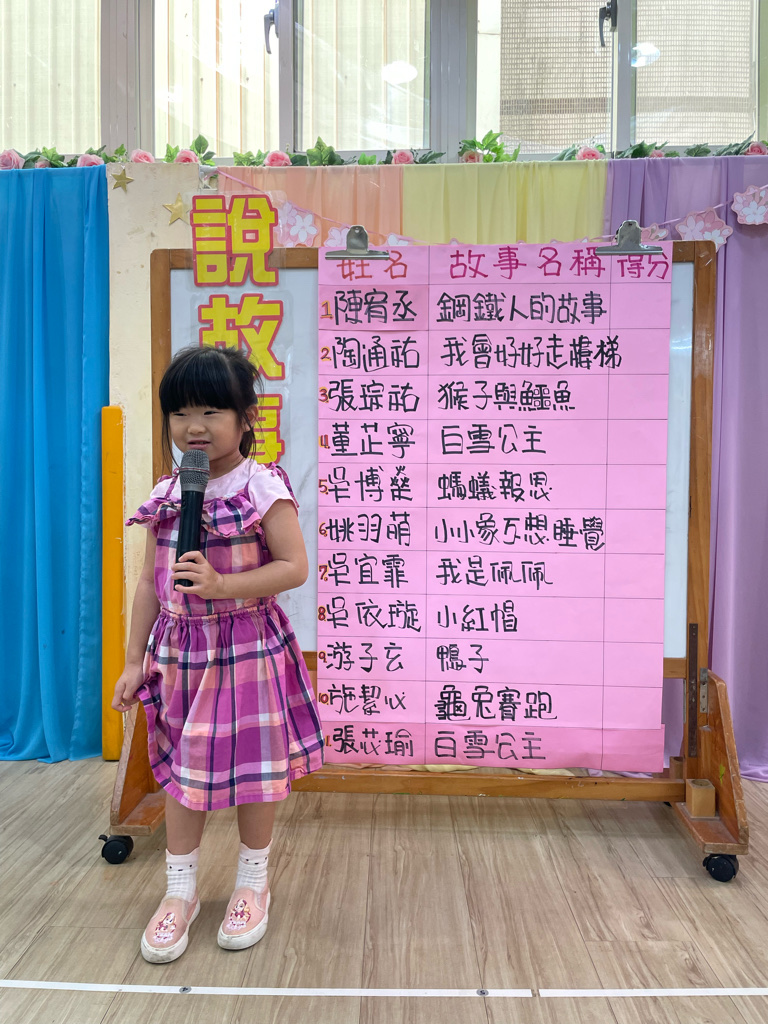 說故事
姓名 故事名稱 得分
1. 陳宥丞 鋼鐵人的故事
2. 陶通祐 我會好好走樓梯
3. 張琮祐 猴子與鱷魚
4. 董芷寧 白雪公主
5. 吳博燊 螞蟻報恩
6. 姚羽萌 小小象不想睡覺
7. 吳宜霏 我是佩佩
8. 吳依璇 小紅帽
9. 游子玄 鴨子
10. 施絜心 龜兔賽跑
11. 張芯瑜 白雪公主